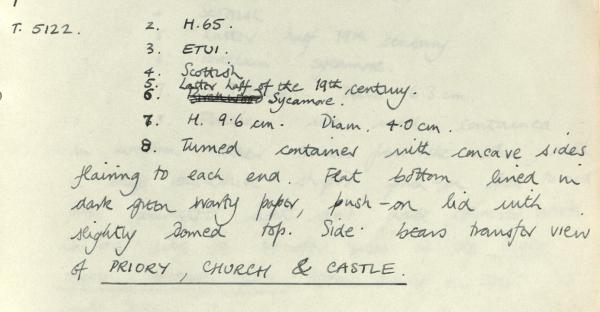 T. 5122. 2. H.65.
3. ETUI.
4. Scottish
5. Latter half of the 19th century.
6. Sycamore.
7. H. 9.6 cm. Diam. 4.0 cm.
8. Turned container with concave sides
flairing to each end. Flat bottom lined in
dark green warty paper, push-on lid with
slightly domed top. Side bears transfer view
of PRIORY, CHURCH & CASTLE.